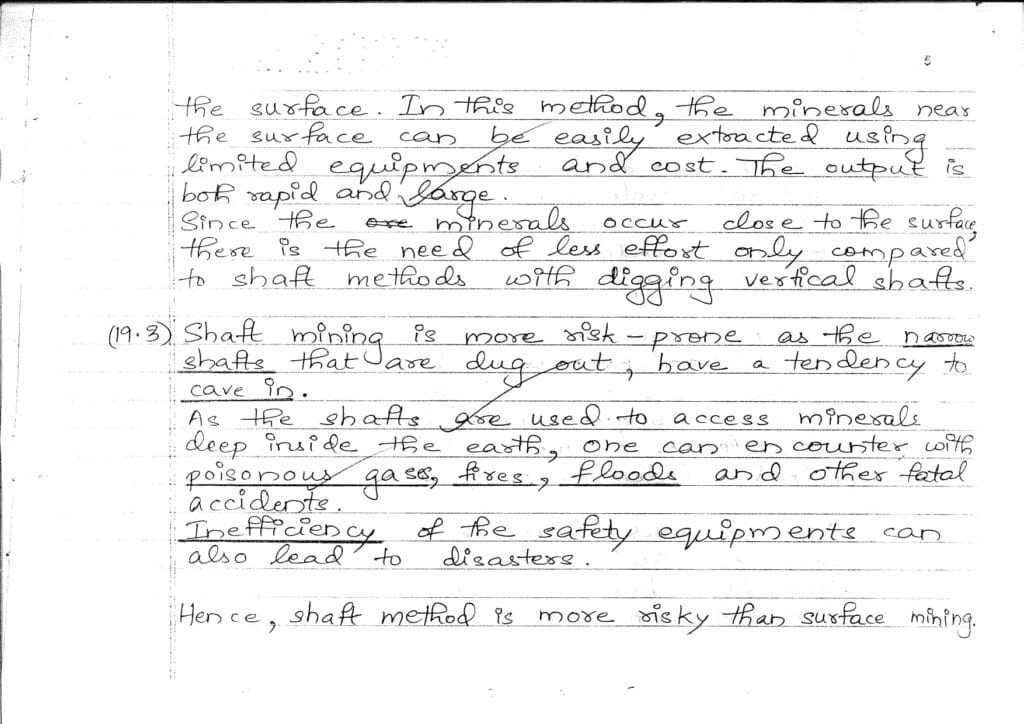 5
the surface. In this method, the minerals near
the surface can be easily extracted using
limited equipments and cost. The output is
both rapid and large.
Since the ore minerals occur close to the surface,
there is the need of less effort only compared
to shaft methods with digging vertical shafts.
(19.3) Shaft mining is more risk-prone as the narrow
shafts that are dug out, have a tendency to
cave in.
As the shafts are used to access minerals
deep inside the earth, one can encounter with
poisonous gases, fires, floods and other fatal
accidents.
Inefficiency of the safety equipments can
also lead to disasters.
Hence, shaft method is more risky than surface mining.